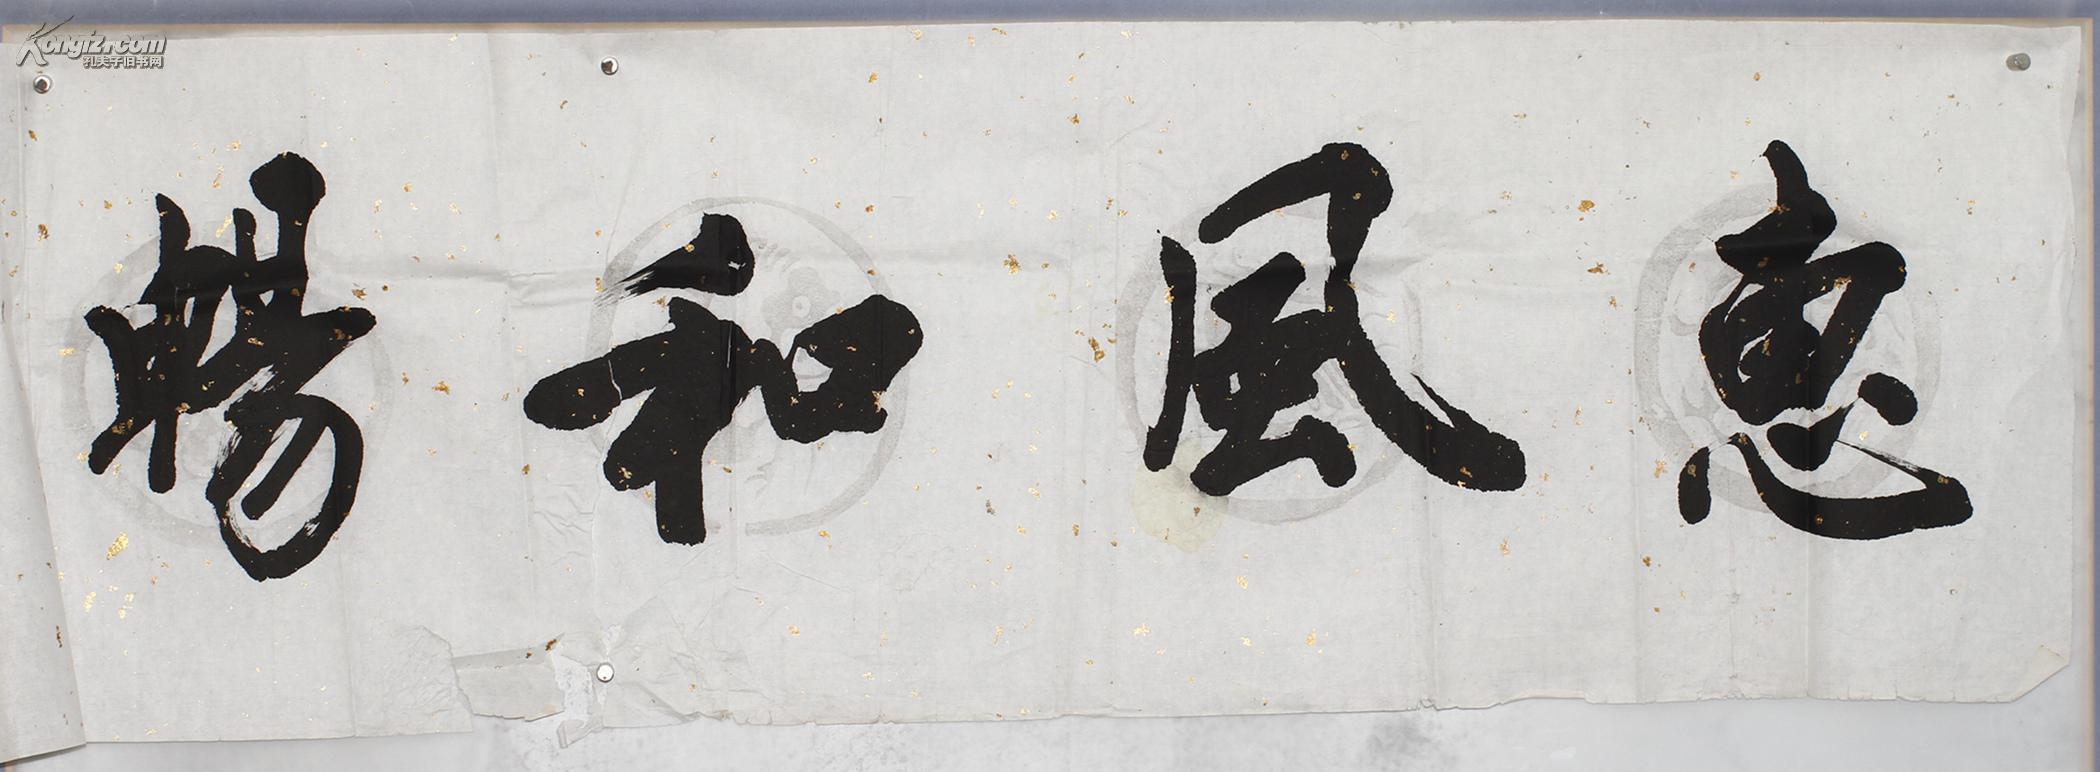 惠風和暢
Kongfz.com
孔夫子旧书网